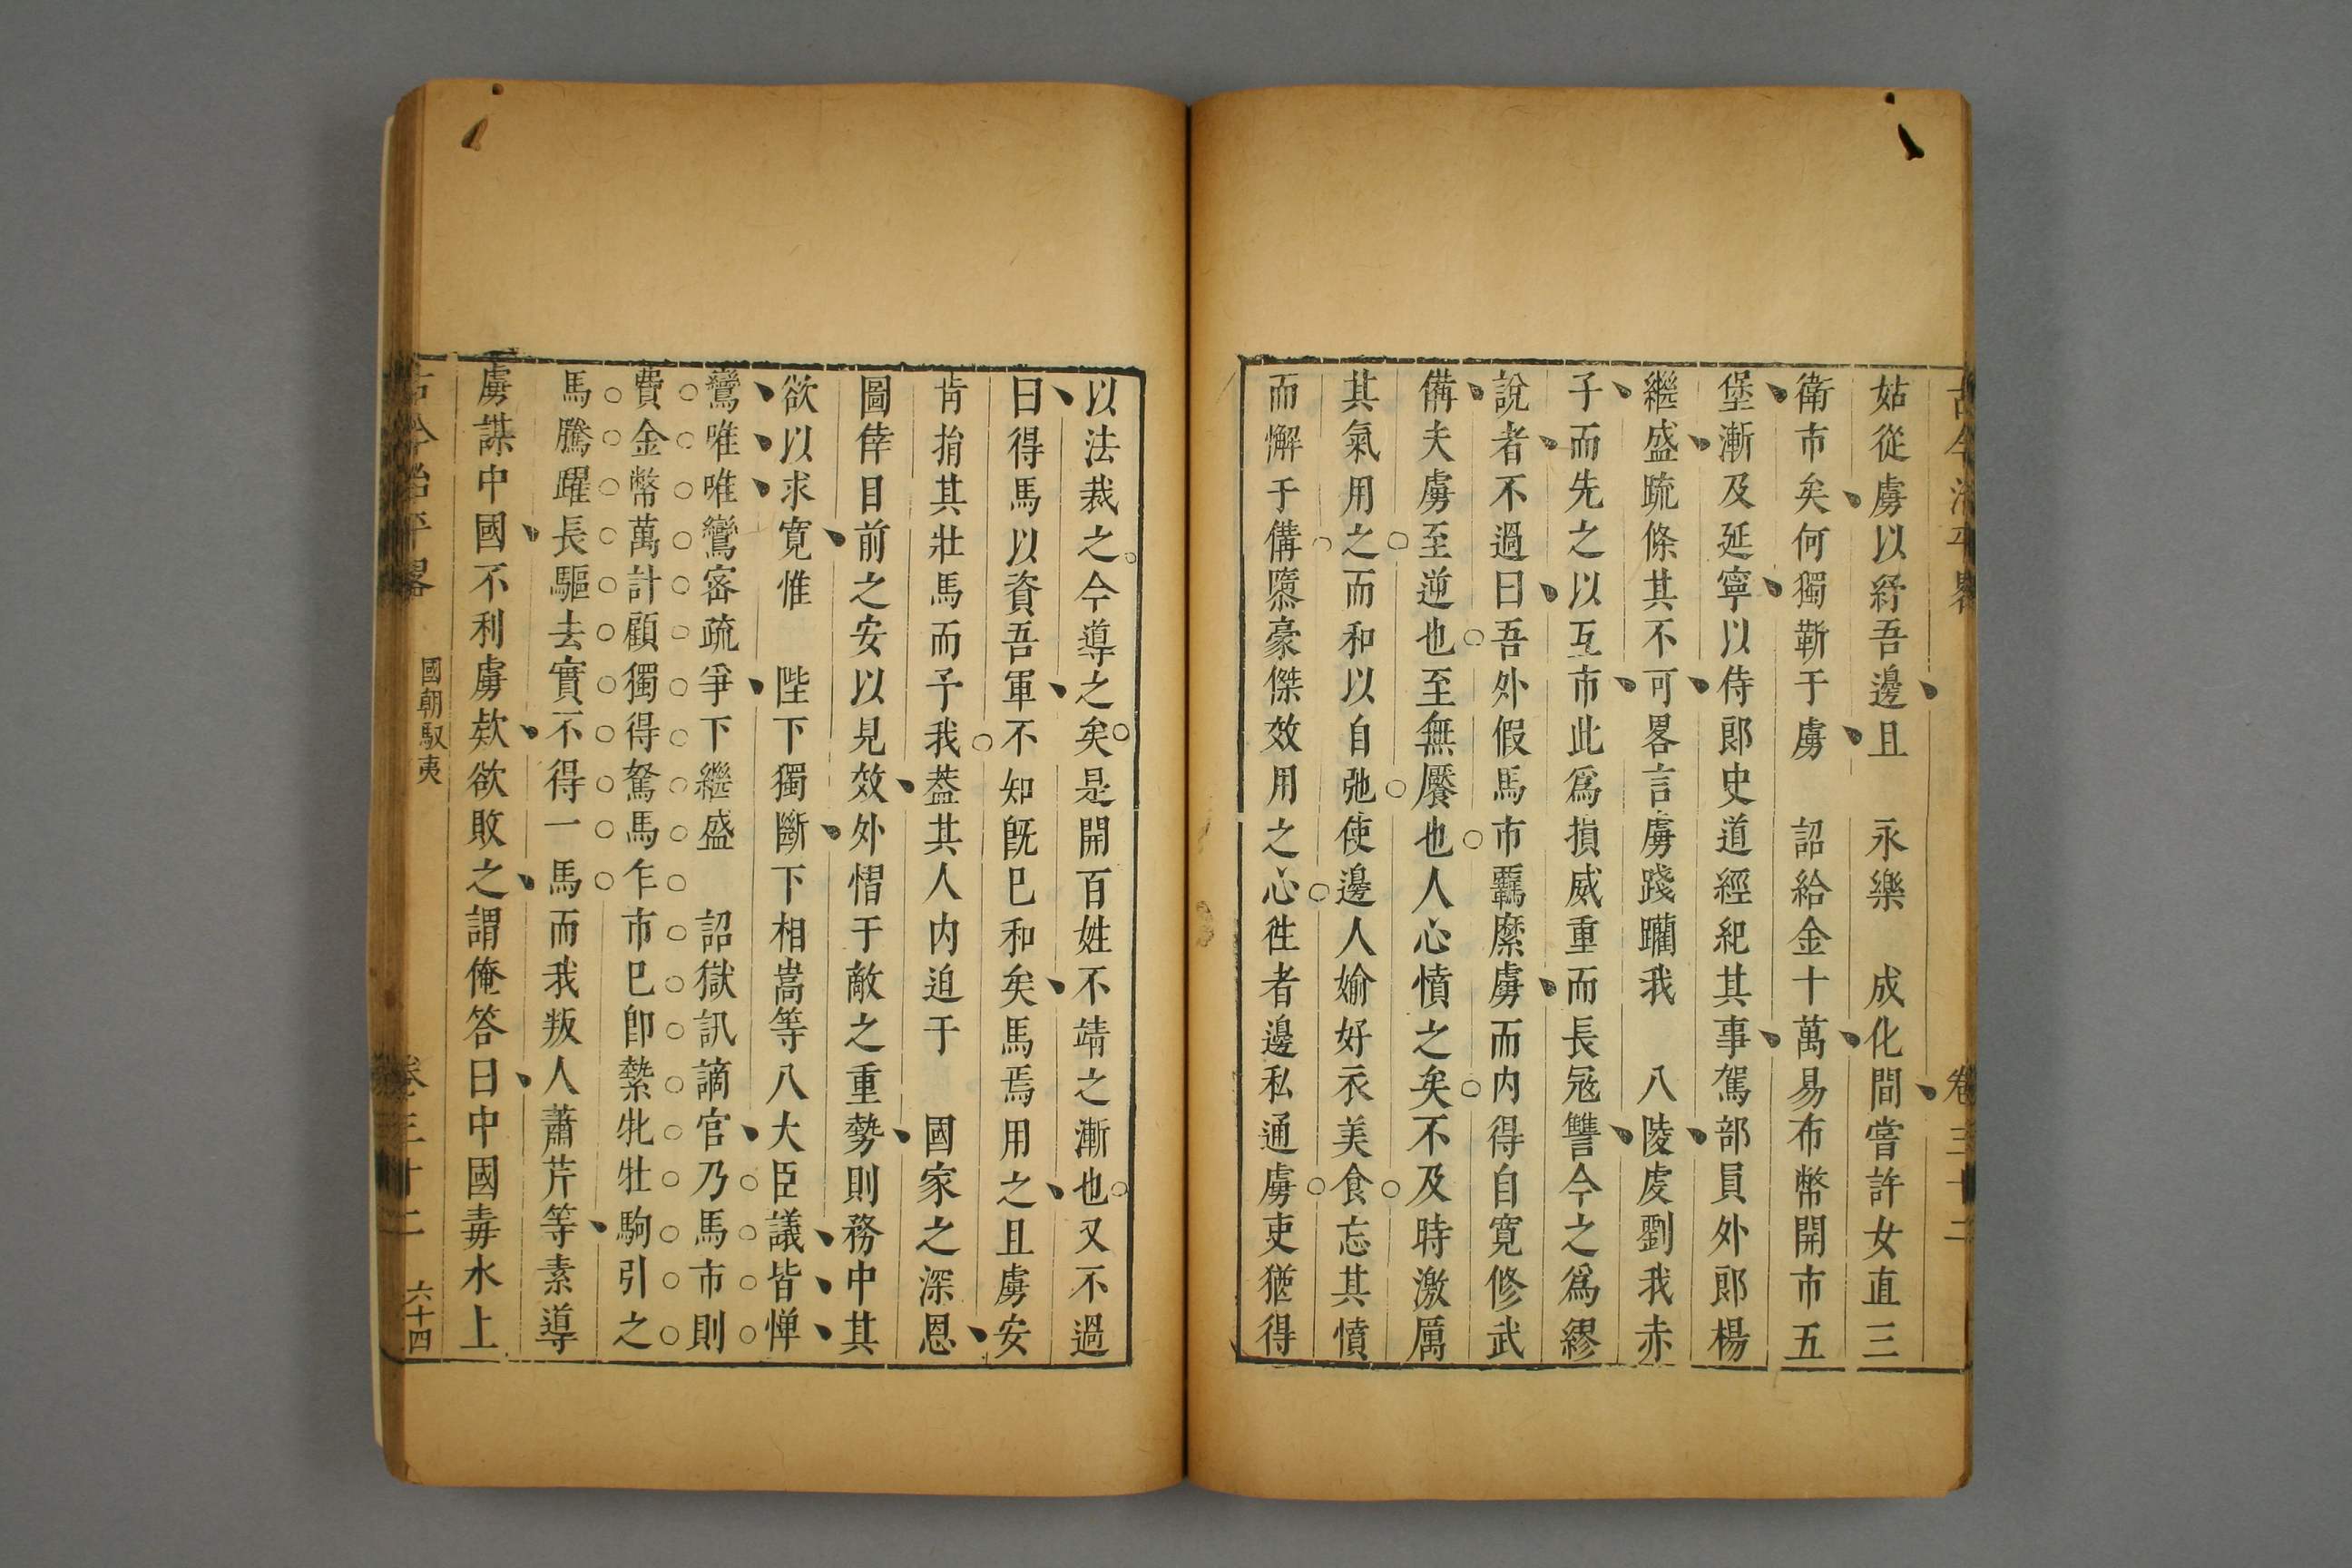 古今治平畧 卷三十二
姑從虜以紓吾邊且 永樂 成化間嘗許女直三
衛市矣何獨靳于虜 詔給金十萬易布幣開市五
堡漸及延寧以侍郎史道經紀其事駕部員外郎楊
繼盛疏條其不可畧言虜踐躪我 八陵虔劉我赤
子而先之以互市此爲損威重而長冦讐今之爲繆
說者不過曰吾外假馬市羈縻虜而内得自寛修武
備夫虜至逆也至無饜也人心憤之矣不及時激厲
其氣用之而和以自弛使邊人婾好衣美食忘其憤
而懈于備隳豪傑效用之心徃者邊私通虜吏猶得
以法裁之今導之矣是開百姓不靖之漸也又不過
曰得馬以資吾軍不知旣已和矣馬焉用之且虜安
肯捐其壯馬而予我葢其人内迫于 國家之深恩
圖倖目前之安以見效外懾于敵之重勢則務中其
欲以求寛惟 陛下獨斷下相嵩等八大臣議皆憚
鸞唯唯鸞密疏爭下繼盛 詔獄訊謫官乃馬市則
費金幣萬計顧獨得駑馬乍市已卽縶牝牡駒引之
馬騰躍長驅去實不得一馬而我叛人蕭芹等素導
虜謀中國不利虜欵欲敗之謂俺答曰中國毒水上
古今治平畧 國朝馭夷 卷三十二 六十四